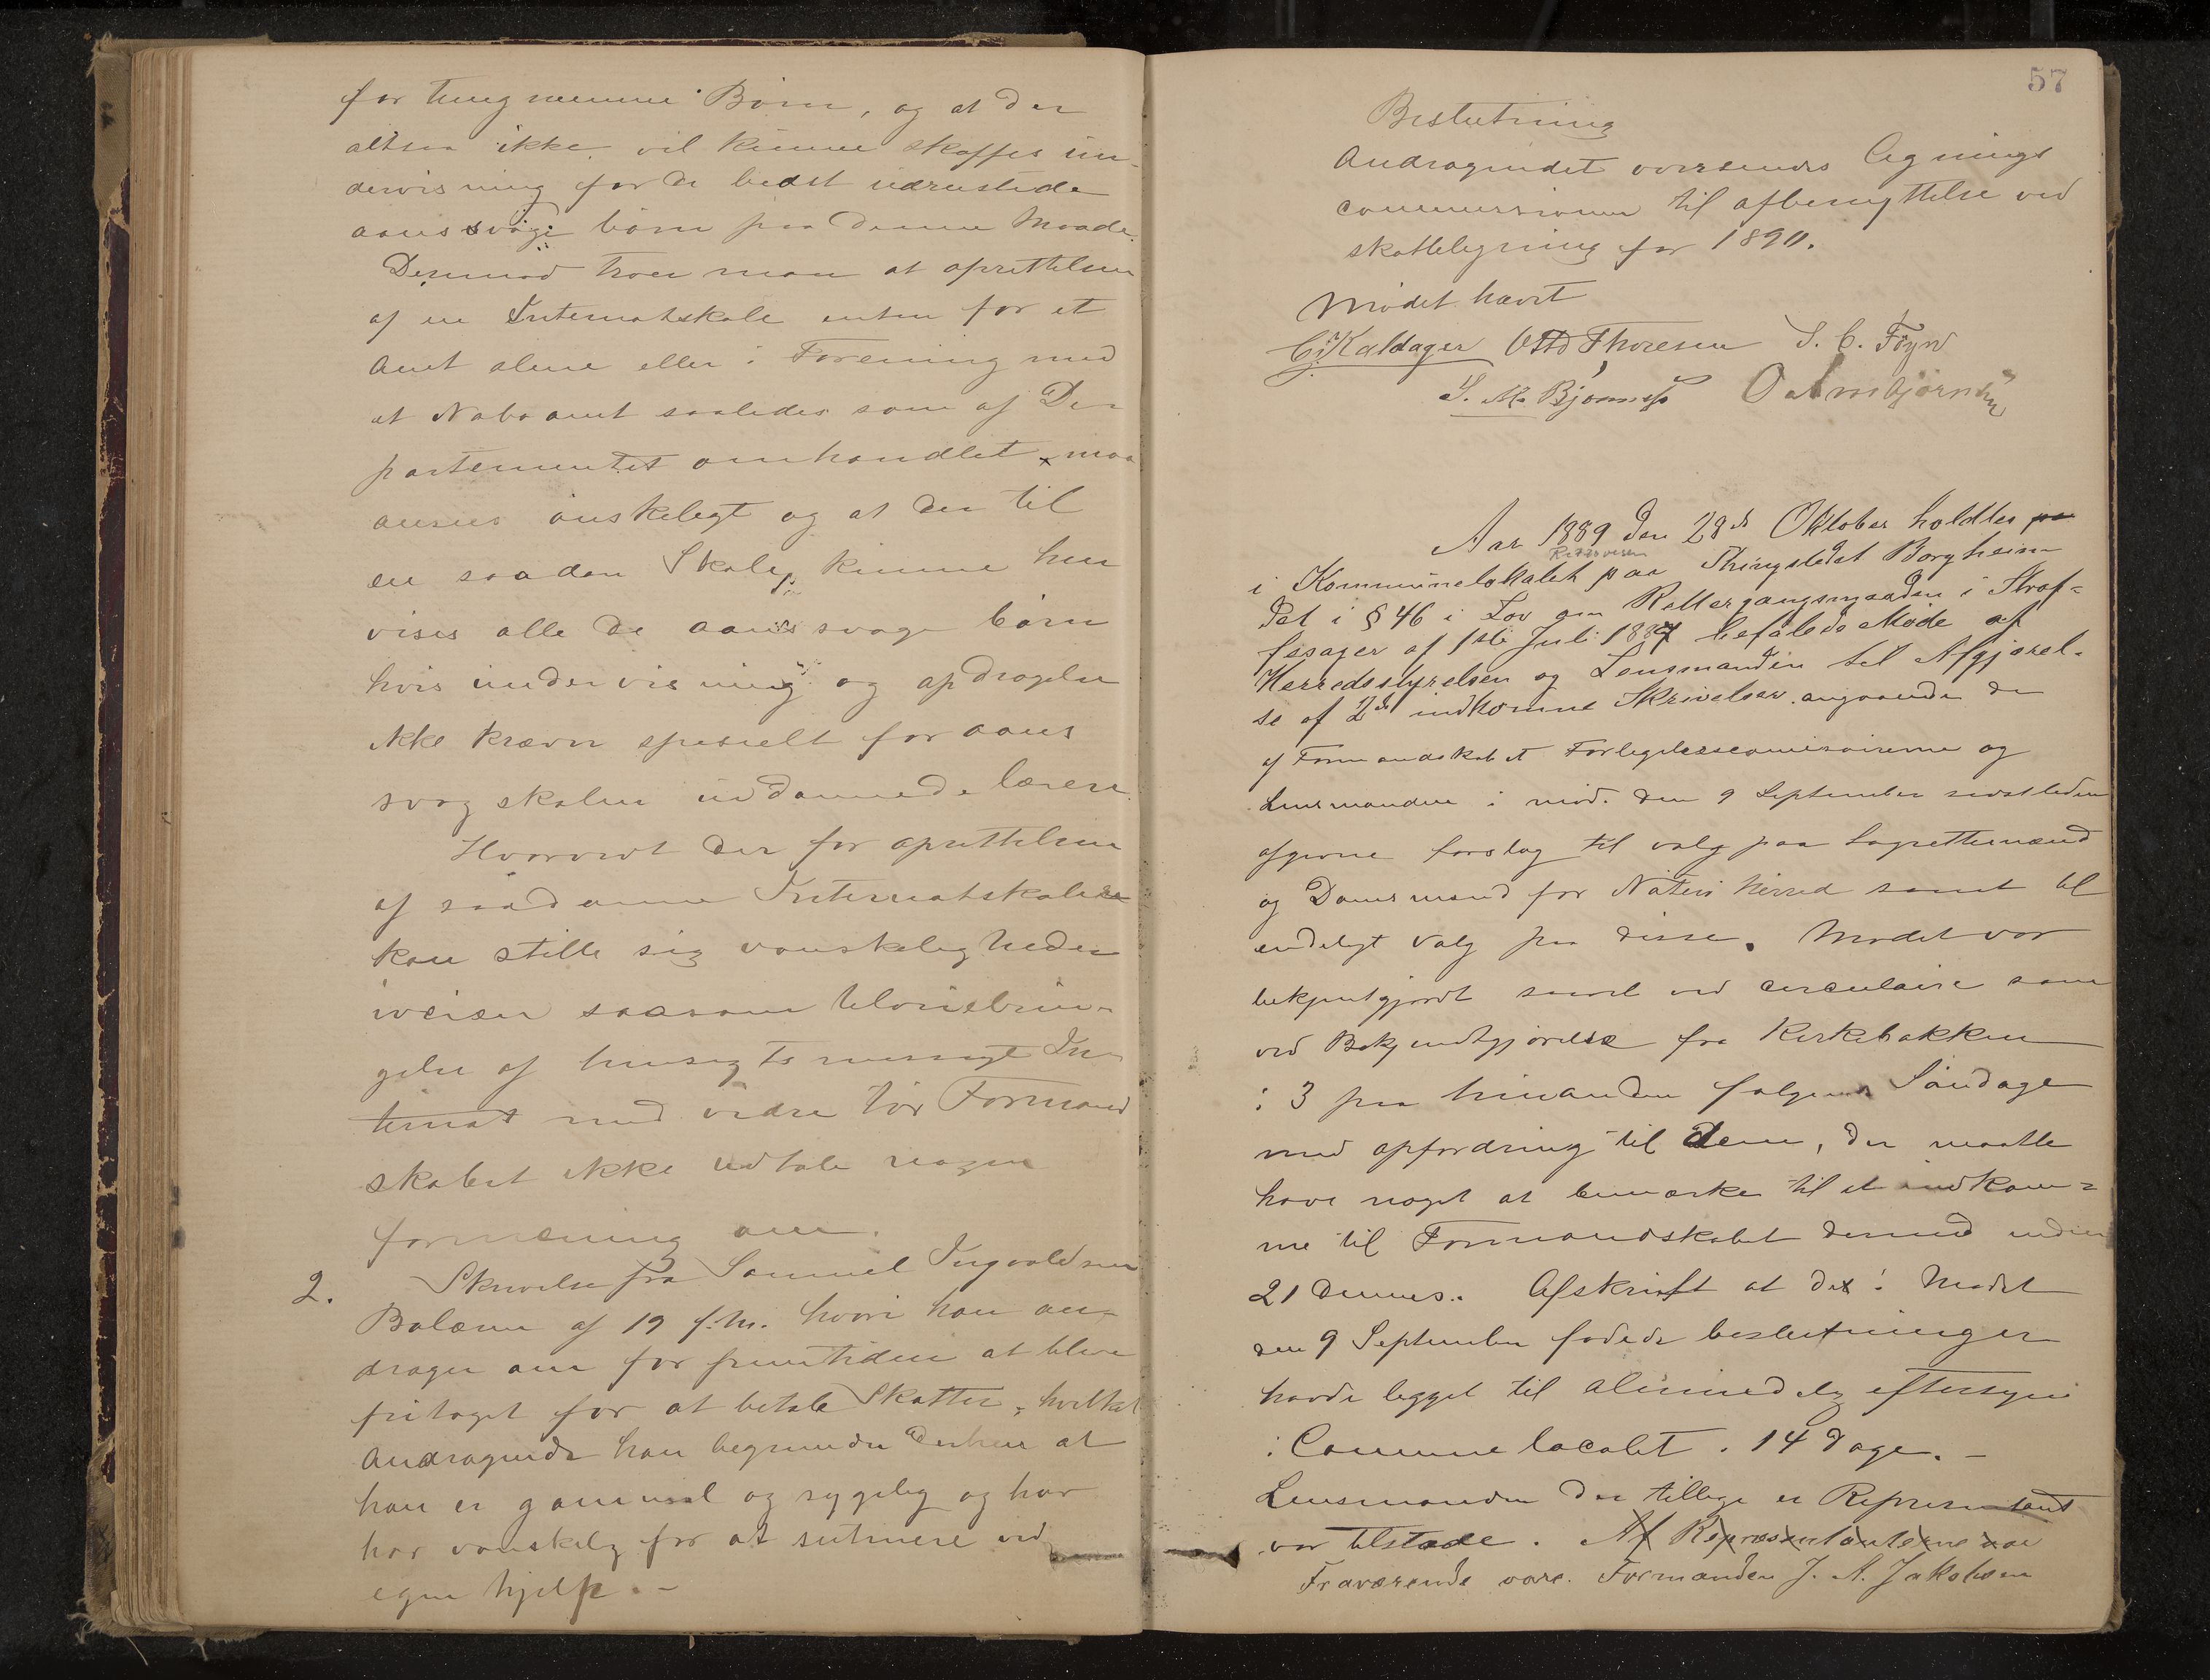 for tungnemme Børn, og at der
altsaa ikke vil kunne skaffes un-
dervisning for de bedst udrustede
aanssvage børn paa denne Maade.
Derimod troer man at oprettelsen
af en Internatskole enten for et
Amt alene eller i Forening med
et Naboamt saaledes som af De-
partementet omhandlet maa
ansees ønskeligt og at der til
en saadan Skole kunne hen
vises alle de aandssvage børn
hvis undervisning og opdragelse
ikke kræver specielt for aans
svag skolen uddannede lærere.
Hvorvidt der for oprettelsen
af saadanne Internatskoler
kan stille sig vanskeligheder
iveien saasom tilveiebrin-
gelse af hensigtsmæssigt In-
ternat med videre tør Formand
skabet ikke udtale nogen
formening om.
2. Skrivelse fra Samuel Ingvaldsen
Bolærne af 19 f.m. hvori han an-
drager om for fremtiden at blive
fritaget for at betale Skatter, hvilket
Andragende han begrunder derhen at
han er gammel og sygelig og har
har vanskelig for at subsistere ved
egen hjelp. -
57
Beslutning
Andragendet oversendes Lignings
commissionen til afbenyttelse ved
skatteligning for 1890.
Mødet hævet
C. Kaldager Otto Thoresen S. C. Føyn
S. M. Bjønness O Ambjørnsen
Aar 1889 den 28de Oktober holdtes paa
i Kommunelokalet paa Thingstedet Borgheim
det i § 46 i Lov om Rettergangsmaaden i Straf-
fesager af 1ste Juli 1887 befalede Møde af
Herredsstyrelsen og Lensmanden til Afgjørel-
se af 2de indkomne Skrivelser angaaende de
af Formandskabet Forligelsescomisairerne og
Lensmanden i mød. den 9 September sidstleden
afgivne forslag til valg paa Lagrettemænd
og Domsmænd for Nøterø herred samt til
endeligt Valg paa disse. Mødet var
bekjentgjordt saavel ved circulaire som
ved Bekjendtgjørelse fra Kirkebakken
i 3 paa hinanden følgende Søndage
med opfordring til dem, der maatte
have noget at bemærke til at indkom=
me til Formandskabet dermed inden
21 dennes. Afskrift at det i Mødet
den 9 September fadede beslutninger
havde ligget til alimindelig eftersyn
i Communelocalet i 14 dage. -
Lensmanden der tillige er Repræsentant
var tilstæde. Af Repræsentanterne var
Fraværende vare Formanden J. A. Jakobsen